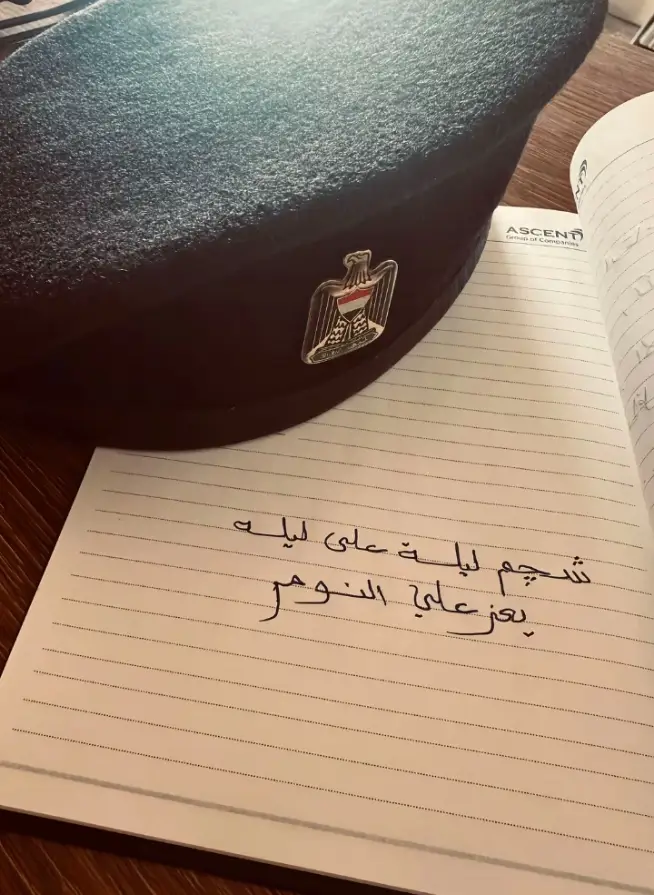 ASCENT
Group of Companies
شچم ليلة على ليله
يعز علي النوم